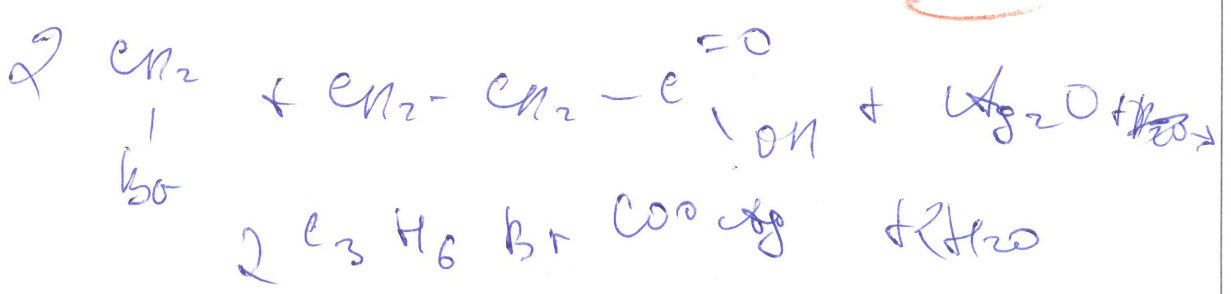 2 CH2 + CH2 - CH2 - C =O \ OH + Ag2O →
|
Br
2 C3 H6 Br COO Ag + 2H2O